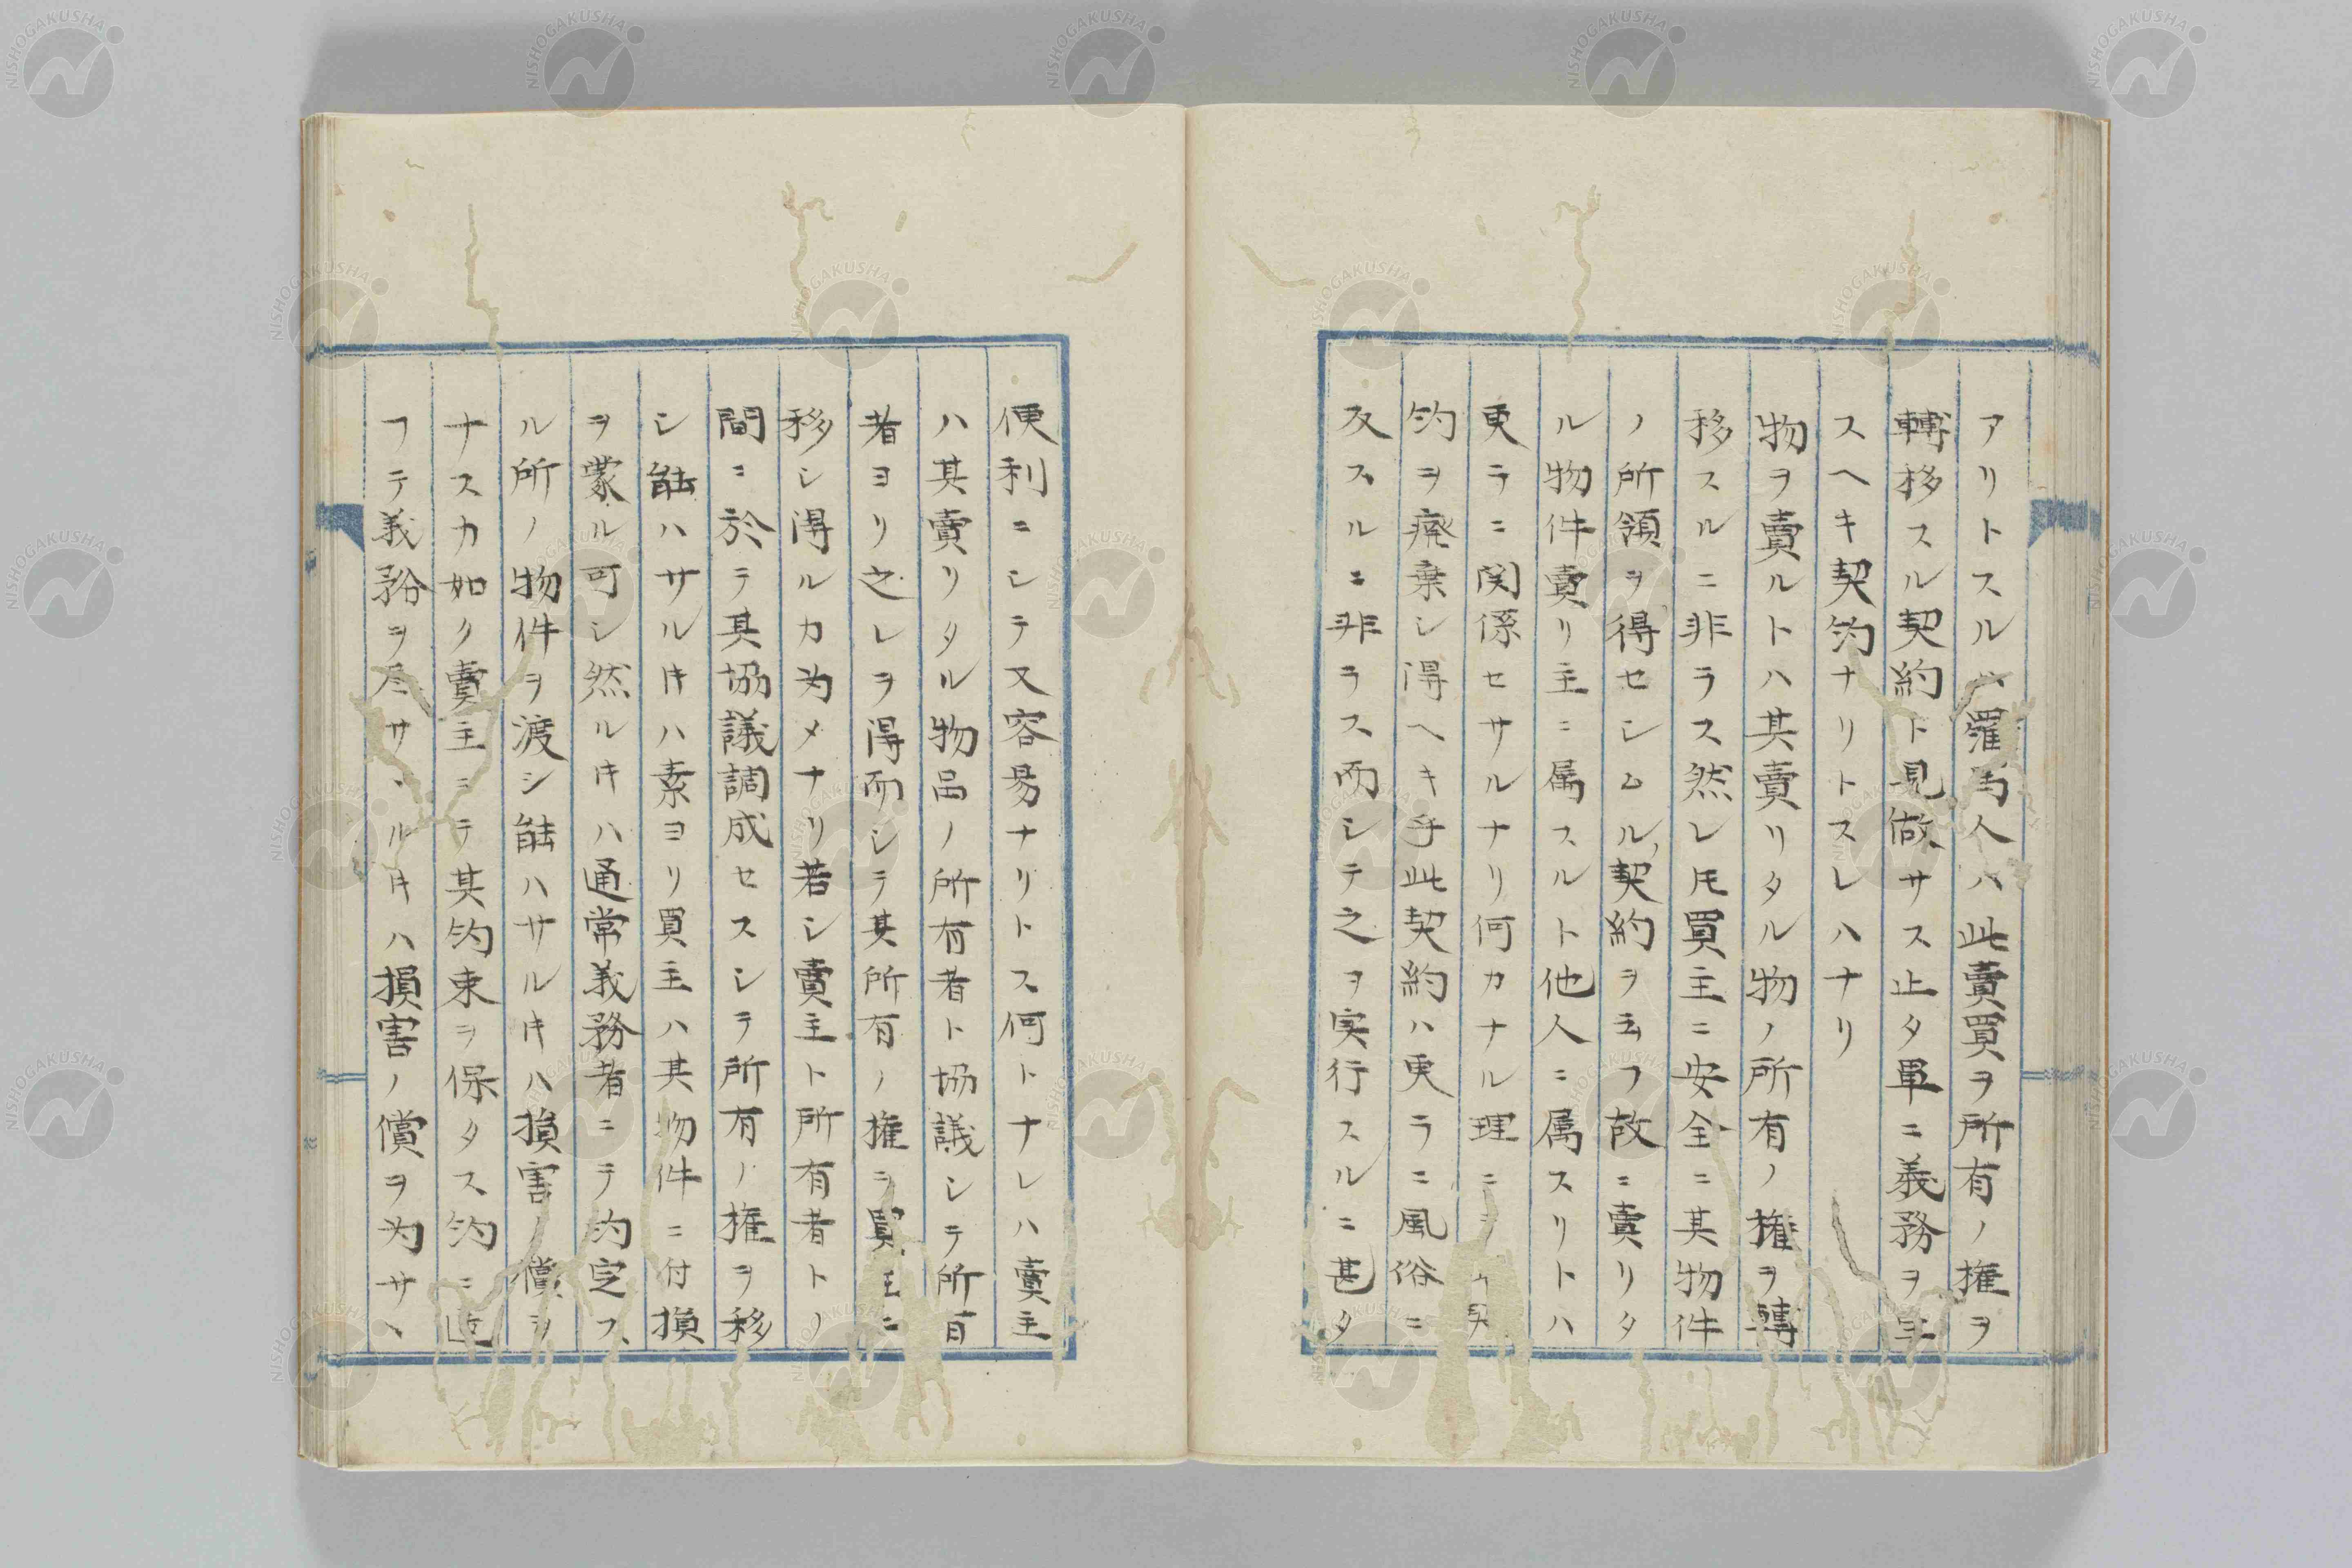 アリトスルハ羅馬人ハ此賣買ヲ所有ノ権ヲ
轉移スル契約ト見做サス止タ単ニ義務ヲ生
スヘキ契約ナリトスレハナリ
物ヲ賣ルトハ其賣リタル物ノ所有ノ権ヲ轉
移スルニ非ラス然レ𪜈買主ニ安全ニ其物件
ノ所領ヲ得セシムル契約ヲ云フ故ニ賣リタ
ル物件賣リ主ニ属スルト他人ニ属スリトハ
更ラニ関係セサルナリ何カナル理ニ
約ヲ廃棄シ得ヘキ乎此契約ハ更ラニ風俗ニ
反スルニ非ラス而シテ之ヲ実行スルニ甚タ
便利ニシテ又容易ナリトス何トナレハ賣主
ハ其賣リタル物品ノ所有者ト協議シテ所有
者ヨリ之レヲ得而シテ其所有ノ権ヲ買主ニ
移シ得ルカ為メナリ若シ賣主ト所有者トノ
間ニ於テ其協議調成セスシテ所有ノ権ヲ移
シ能ハサルキハ素ヨリ買主ハ其物件ニ付損
ヲ蒙ル可シ然ルキハ通常義務者ニテ約定ス
ル所ノ物件ヲ渡シ能ハサルキハ損害ノ償ヲ
ナスカ如ク賣主ニテ其約束ヲ保タス約ニ
フテ義務ヲ尽サヽルキハ損害ノ償ヲ為サヽ